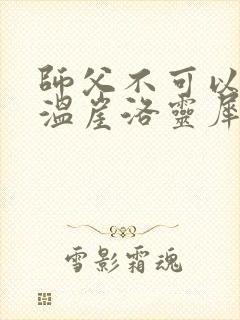 師父不可以
溫崖洛靈犀
雪影霜魂